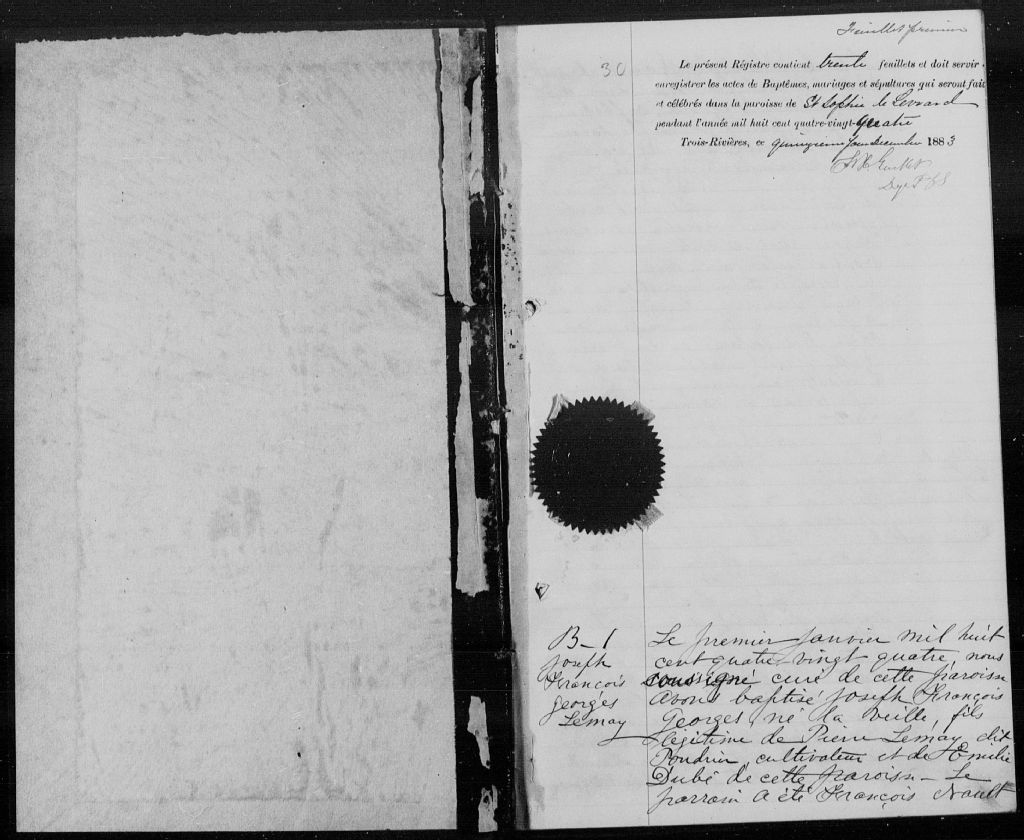 Feuillet premier
30
Le présent Régistre contient trente feuillets et doit servir
enregistrer les actes de Baptêmes, mariages et sépultures qui seront fait
et célébrés dans la paroisse de St Sophie de Levrard
pendant l'année mil huit cent quatre-vingt-quatre
Trois-Rivières, ce quinzieme jour Decembre 1883
B-1
Joseph
François
Georges
Lemay
Le premier janvier mil huit
cent quatre-vingt quatre, nous
soussigné curé de cette paroisse
avons baptisé Joseph François
Georges, né la veille, fils
légitime de Pierre Lemay dit
Poudrier cultivateur et de Emilie
Dubé de cette paroisse - Le
parrain a été François Nault